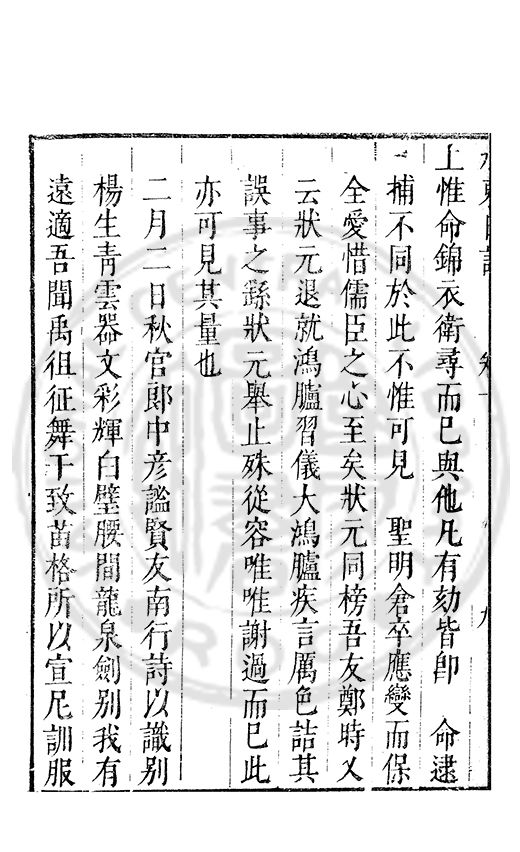 上惟命錦衣衛尋而已與他凡有劾皆卽　命逮
捕不同於此不惟可見　聖明倉卒應變而保
全愛惜儒臣之心至矣狀元同榜吾友鄭時乂
云狀元退就鴻臚習儀大鴻臚疾言厲色詰其
誤事之繇狀元舉止殊從容唯唯謝過而已此
亦可見其量也
二月二日秋官郎中彥謐賢友南行詩以識别
楊生靑雲器文彩輝白璧腰間龍泉劍别我有
遠適吾聞禹徂征舞干致苗格所以宣尼訓服